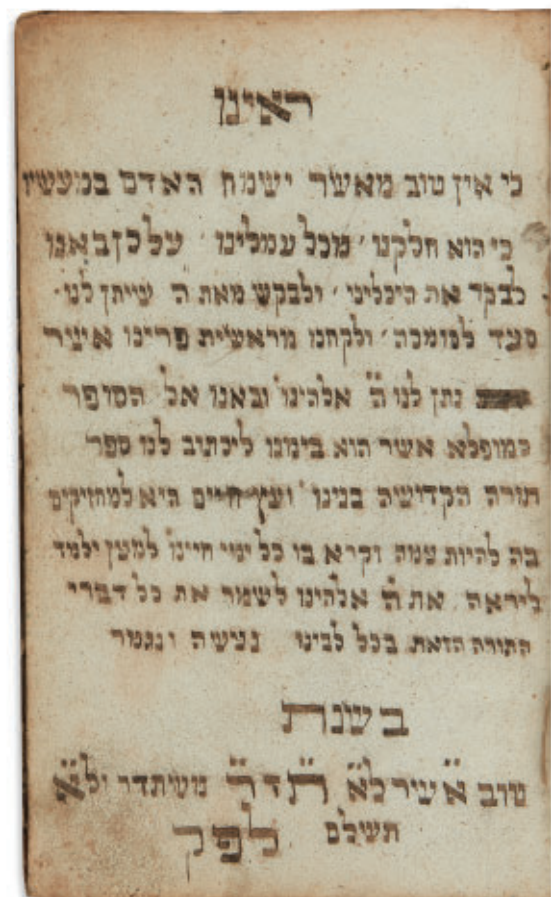 ראינו
כי אין טוב מאשר ישמח האדם במעשיו
כי הוא חלקנו ׳ מכל עמלינו ׳ על כן באנו
לבקר את היכלינו ׳ ולבקש מאת ה׳ שיתן לנו
סעד לתומכה ׳ ולקחנו מראשית פרינו אשר
נתן לנו ה״ אלהינו ובאנו אל הסופר
המופלא אשר הוא בימנו לכתוב לנו ספר
תורה הקדושה בנינו ׳ ועץ חיים היא למחזיקים
בה להיות עמה וקרא בו כל ימי חיינו למען ילמד
ליראה את ה״ אלהינו לשמר את כל דברי
התורה הזאת בכל לבינו נעשה ונגמר
בשנת
טוב א״שר לא״ ת״דר״ משיתדר ולא״
תשלם לפק